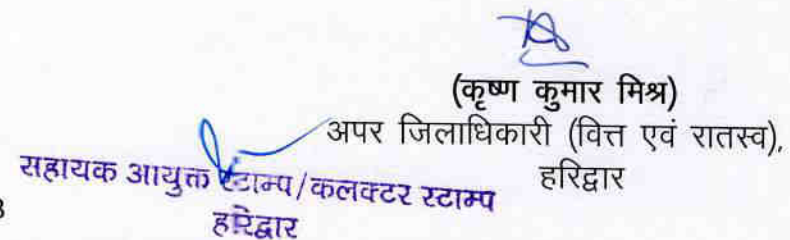 (कृष्ण कुमार मिश्र)
अपर जिलाधिकारी (वित्त एवं रातस्व),
हरिद्वार
सहायक आयुक्त स्टाम्प/कलक्टर स्टाम्प
हरिद्वार
3